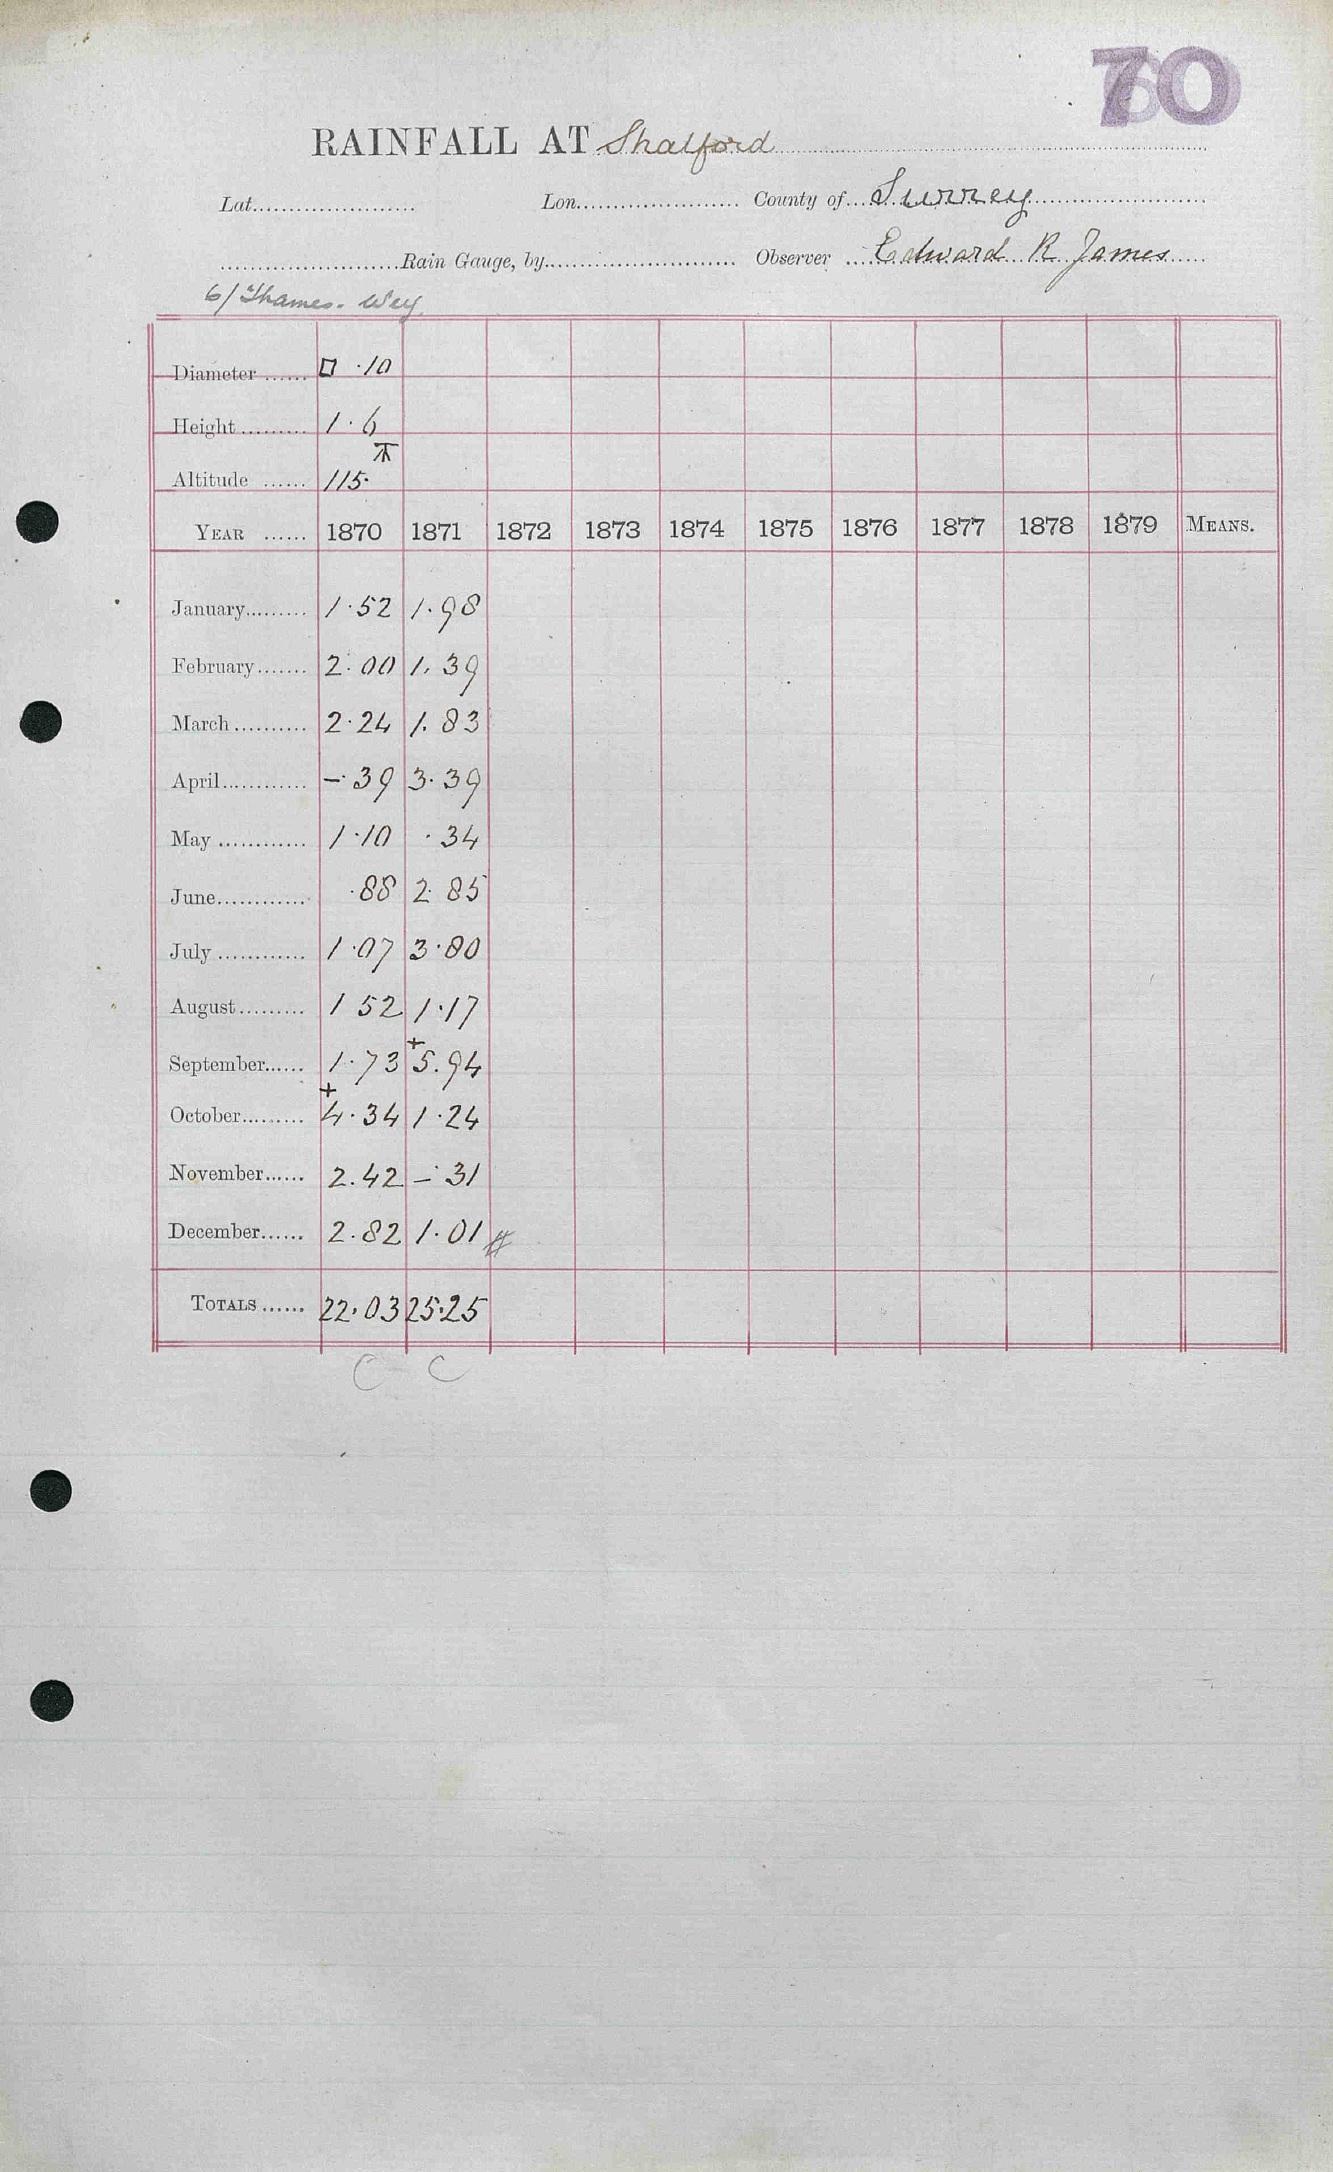 70
RAINFALL AT Shalford
Lat. Lon. County of Surrey
Rain Gauge, by Observer Edward R James
6/ Thames - Wey
Diameter □ ·10
Height 1·6
Altitude 115·
YEAR 1870 1871 1872 1873 1874 1875 1876 1877 1878 1879 MEANS.
January 1·52 1.98
February 2·00 1.39
March 2·24 1.83
April –·39 3·39
May 1·10 ·34
June ·88 2·85
July 1·07 3·80
August 1 52 1·17
September 1·73 +5.94
October +4·34 1·24
November 2.42 –·31
December 2·82 1·01 #
TOTALS 22·03 25·25
C C